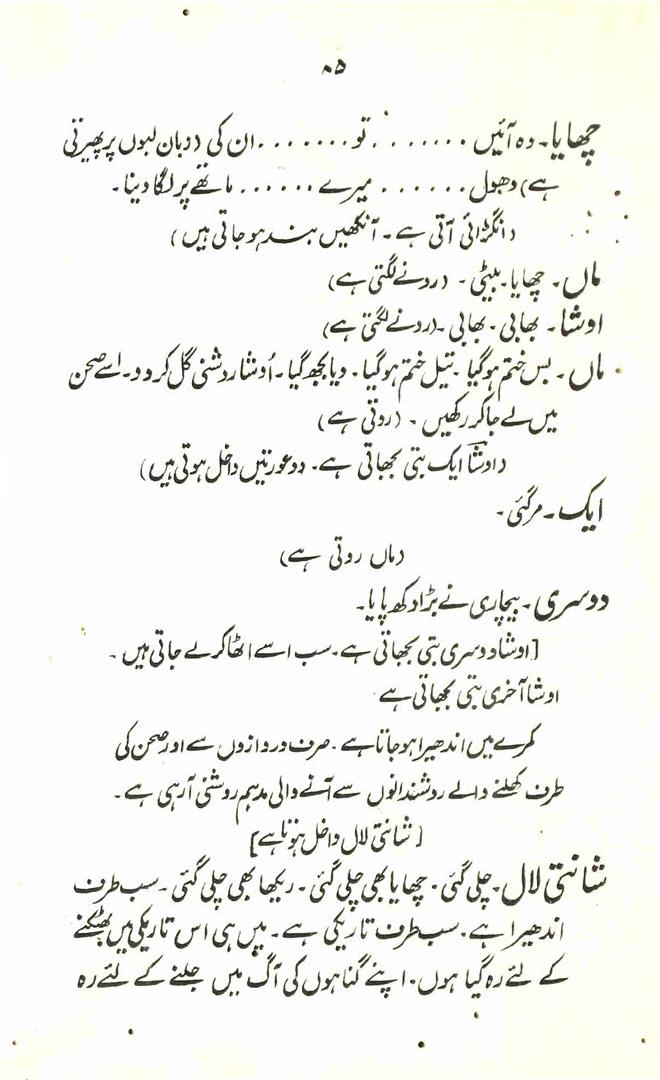 ۸۵
چھایا۔ وہ آئیں ....... تو ....... ان کی (زبان لبوں پر پھیرتی
ہے) دھول ...... میرے ...... ماتھے پر لگا دینا۔
(انگڑائی آتی ہے۔ آنکھیں بند ہو جاتی ہیں)
ماں۔ چھایا۔ بیٹی۔ (رونے لگتی ہے)
اوشا۔ بھابی۔ بھابی۔ (رونے لگتی ہے)
ماں۔ بس ختم ہو گیا۔ تیل ختم ہو گیا۔ دیا بجھ گیا۔ اُوشا روشنی گل کر دو۔ اسے صحن
میں لے جا کر رکھیں۔ (روتی ہے)
(اوشا ایک بتی بجھاتی ہے۔ دو عورتیں داخل ہوتی ہیں)
ایک۔ مر گئی۔
(ماں روتی ہے)
دوسری۔ بیچاری نے بڑا دکھ پایا۔
[اوشا دوسری بتی بجھاتی ہے۔ سب اسے اٹھا کر لے جاتی ہیں۔
اوشا آخری بتی بجھاتی ہے
کمرے میں اندھیرا ہو جاتا ہے۔ صرف دروازوں سے اور صحن کی
طرف کھلنے والے روشندانوں سے آنے والی مدہم روشنی آ رہی ہے۔
[شانتی لال داخل ہوتا ہے]
شانتی لال۔ چلی گئی۔ چھایا بھی چلی گئی۔ ریکھا بھی چلی گئی۔ سب طرف
اندھیرا ہے۔ سب طرف تاریکی ہے۔ میں ہی اس تاریکی میں بھٹکنے
کے لئے رہ گیا ہوں۔ اپنے گناہوں کی آگ میں جلنے کے لئے رہ